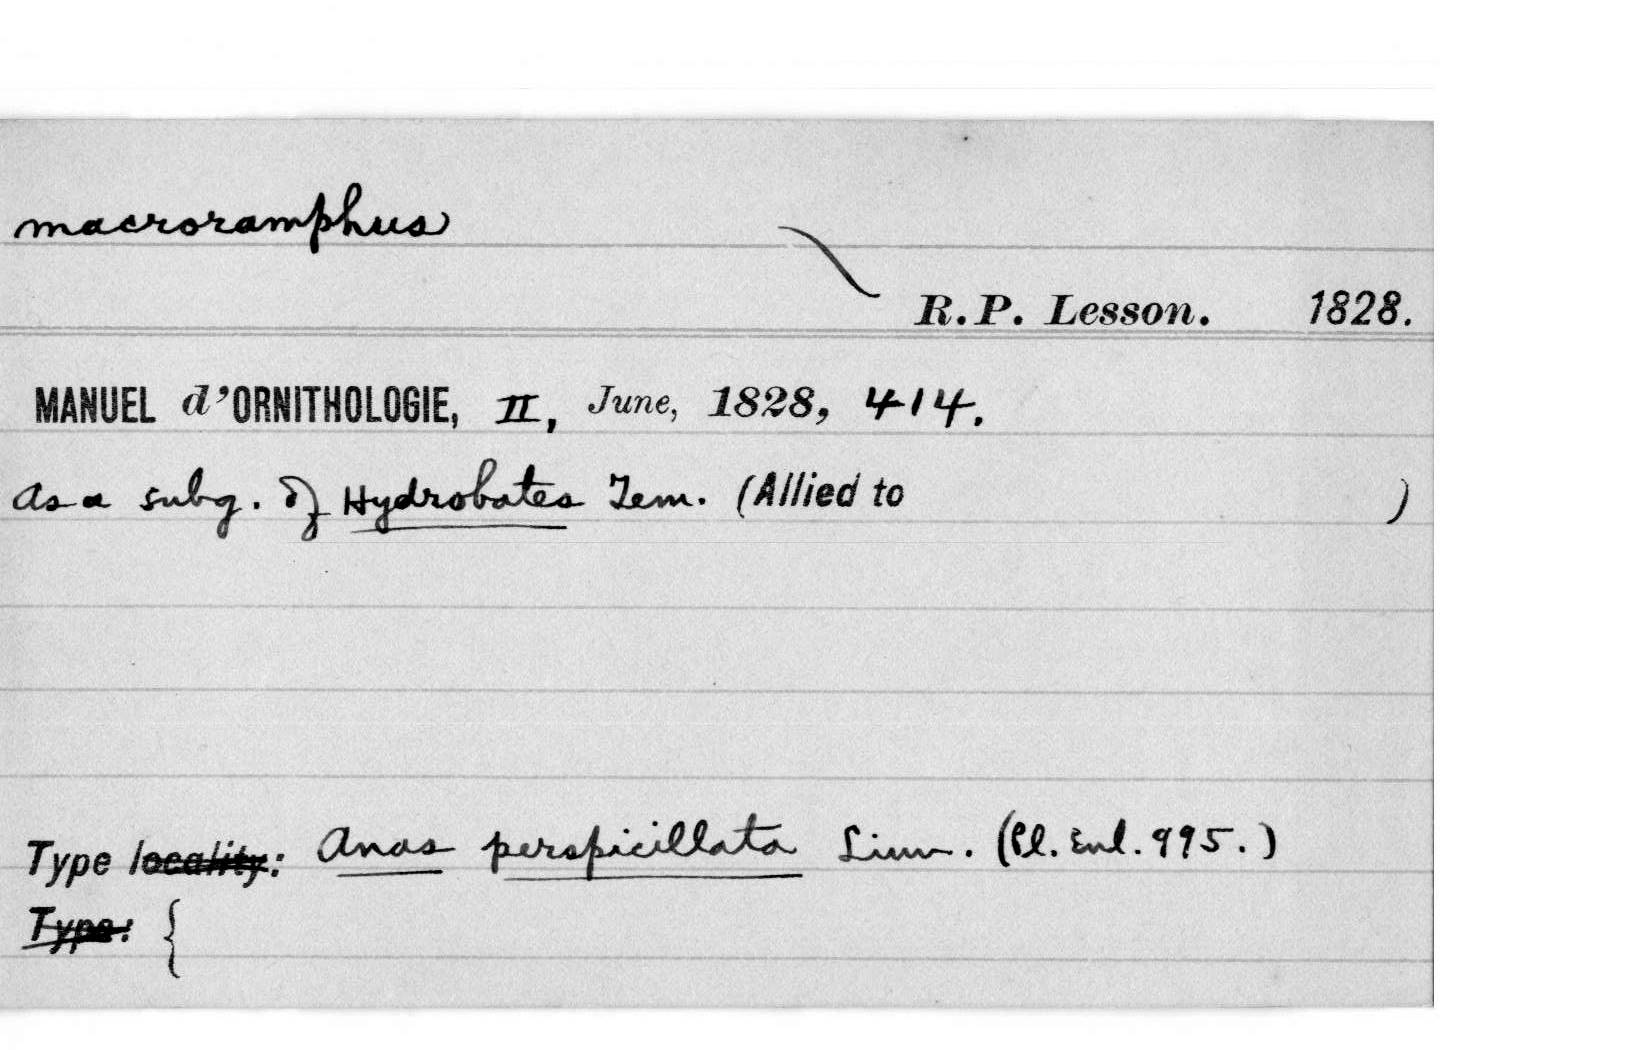 macroramphus
R.P. Lesson. 1828.
MANUEL d'ORNITHOLOGIE, II, June, 1828, 414.
As a subg. of Hydrobates Tem. (Allied to )
Type locality: Anas perspicillata Linn. (Pl. Enl. 995.)
Type: {